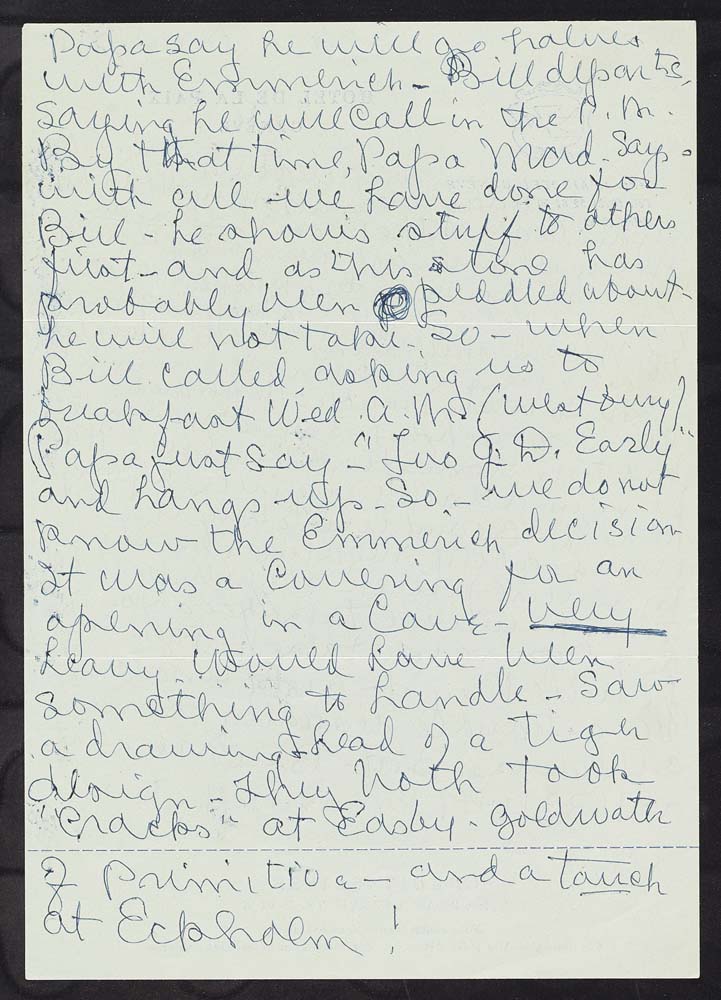 Papa say he will go halves
with Emmerich - Bill departs,
saying he will call in the P.M.
By that time, Papa Mad. Says
with all we have done for
Bill - he shows stuff to others
first - and as this stone has
probably been peddled about -
he will not take. So - when
Bill called, asking us to
breakfast Wed. A.M. (Westbury)
Papa just say - "Too G. D. Early"
and hangs up. So - we do not
know the Emmerich decision
It was a covering for an
opening in a Cave - very
heavy. Would have been
something to handle - Saw
a drawing, head of a tiger
design - They both took
"Cracks" at Easby - Goldwater
of Primitive - and a touch
at Eckholm!